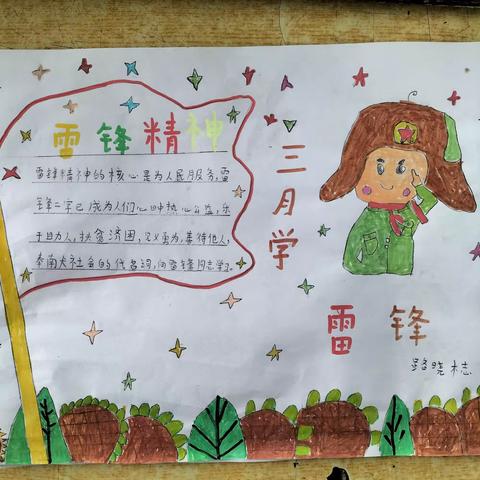 雷锋精神
雷锋精神的核心是为人民服务,雷
锋二字已成为人们心中热心公益,乐
于助人,扶贫济困,见义勇为,善待他人,
奉献社会的代名词,向雷锋同志学习。
三月学
雷锋
路晓